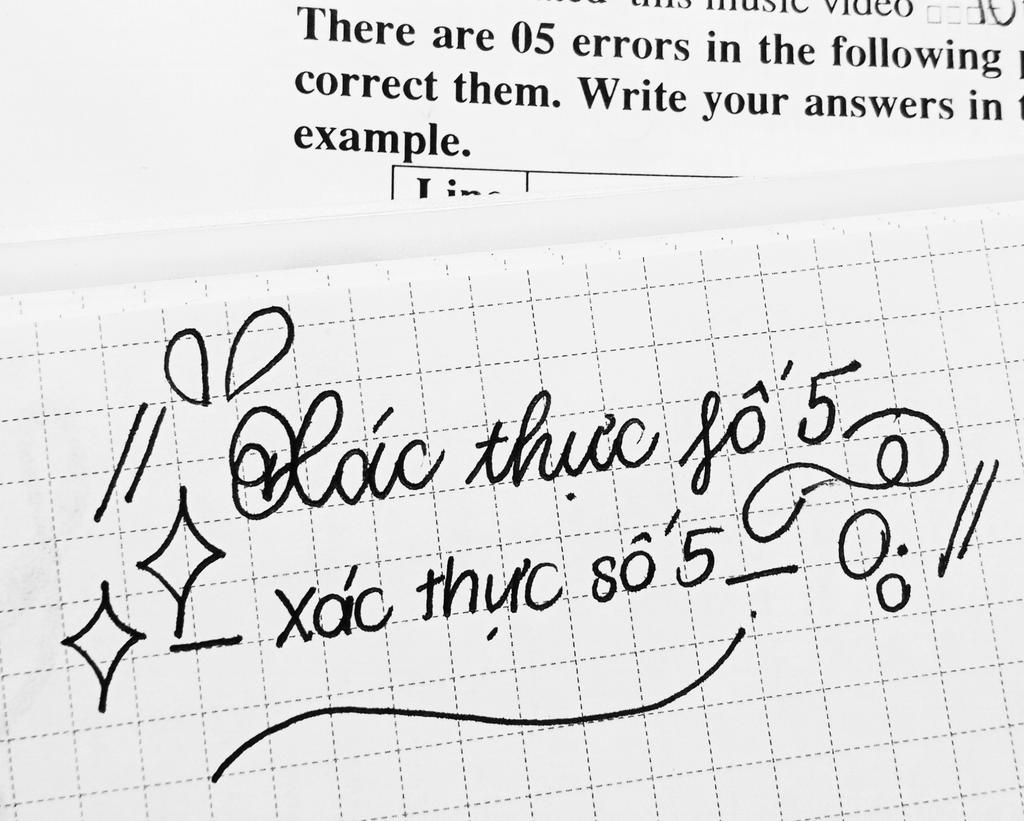 this music video
There are 05 errors in the following
correct them. Write your answers in
example.
Line
Xác thực số 5
xác thực số 5